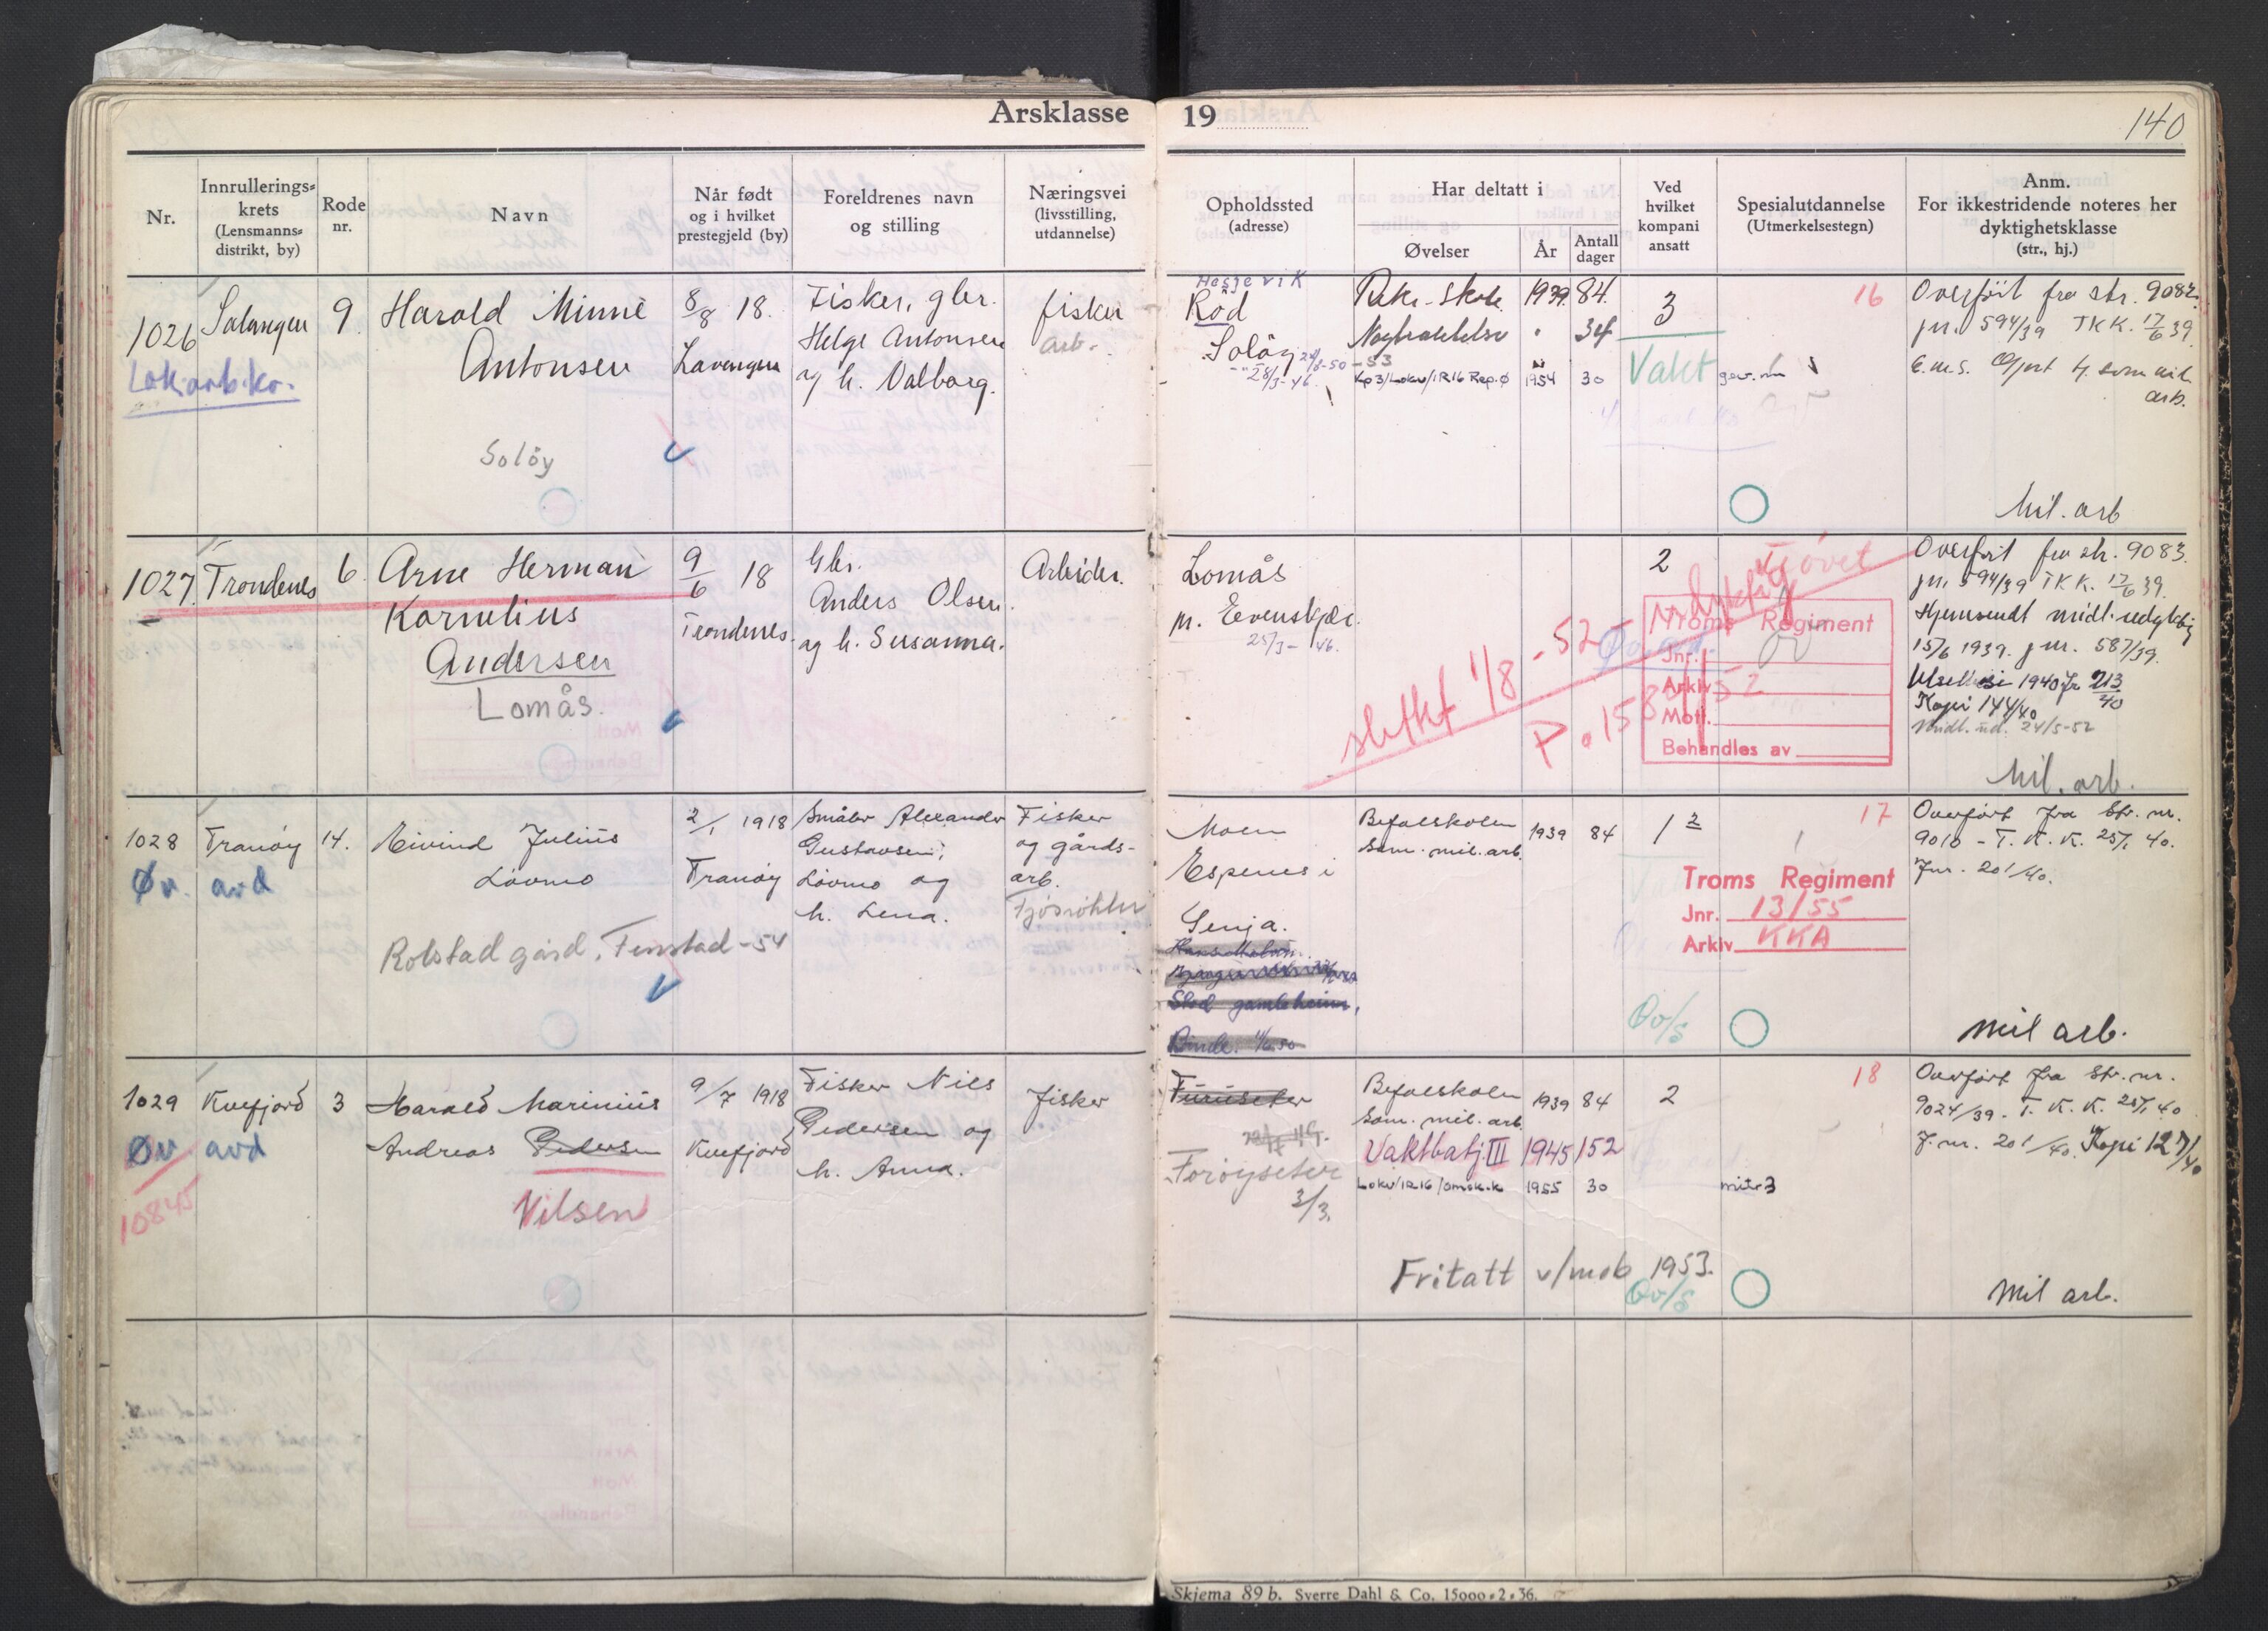 Årsklasse 19
140
Nr.
Innrullerings-
krets
(Lensmanns-
distrikt, by)
Rode
nr.
Navn
Når født
og i hvilket
prestegjeld (by)
Foreldrenes navn
og stilling
Næringsvei
(livsstilling,
utdannelse)
Opholdssted
(adresse)
Har deltatt i
Øvelser
År
Antall
dager
Ved
hvilket
kompani
ansatt
Spesialutdannelse
(Utmerkelsestegn)
Anm.
For ikkestridende noteres her
dyktighetsklasse
(str., hj.)
1026
Lok.arb.ko.
Salangen
9
Harald Minne
Antonsen
Soløy
8/8 18.
Lavangen
Fisker, gbr.
Helge Antonsen
og h. Valborg.
fisker
arb.
Hesjevik
Rød
Soløy
28/3-46.
Rekr.-skole 1939 84
34
Kp3/Lokv/IR16 Rep.ø 1954 30
3
Vakt
16
Overført fra str. 9082.
jnr. 594/39 TKK. 17/6 39.
arb.
Mil. arb
1027.
Trondenes
6.
Arne Herman
Kornelius
Andersen
Lomås.
9/6 18
Trondenes.
Gbr.
Anders Olsen
og h. Susanna.
Arbeider.
Lomås
p. Evenskjær.
25/3-46.
2
slettet 1/8-52
Troms Regiment
Jnr.
Arkiv
Mott.
Behandles av
Overført fra str. 9083.
jnr. 594/39 TKK. 17/6 39.
Hjemsendt midl. udyktig
15/6 1939. jnr. 587/39.
Kopi 144/40
Midl. ud. 24/5-52
Mil. arb.
1028
Øv. avd
Tranøy
14.
Eivind Julius
Løvmo
Rolstad gård, Fenstad-54
2/1 1918
Tranøy
Småbr Alexander
Gustavsen,
Løvmo og
h. Lena.
Fisker
og gårds-
arb.
Fjøsrøkter
Moen
Espenes i
Senja.
Stod gamleheim,
Befalskolen
som mil. arb.
1939 84
1 2
Øv/s
17
Troms Regiment
Jnr. 13/55
Arkiv KKA
Overført fra Str. nr.
9010 - T. K. K. 25/1 40.
Jnr. 201/40.
Mil arb.
1029
Øv. avd
10845
Kvefjord
3
Harald Marinius
Andreas Pedersen
Nilsen
9/7 1918
Kvefjord
Fisker Nils
Pedersen og
h. Anna.
Fisker
Furuseter
Forøyseter
3/3.
Befalskolen
som. mil. arb.
1939 84
Vaktbatj. III 1945 152
Lokv/IR16/omsk.k 1955 30
2
mitr 3
Fritatt v/mob 1953.
Øv/s
18
Overført fra Str. nr.
9024/39. T. K. K. 25/1 40
J.nr. 201/40. Kopi 127/40
Mil arb.
Skjema 89 b. Sverre Dahl & Co. 15000-2-36.